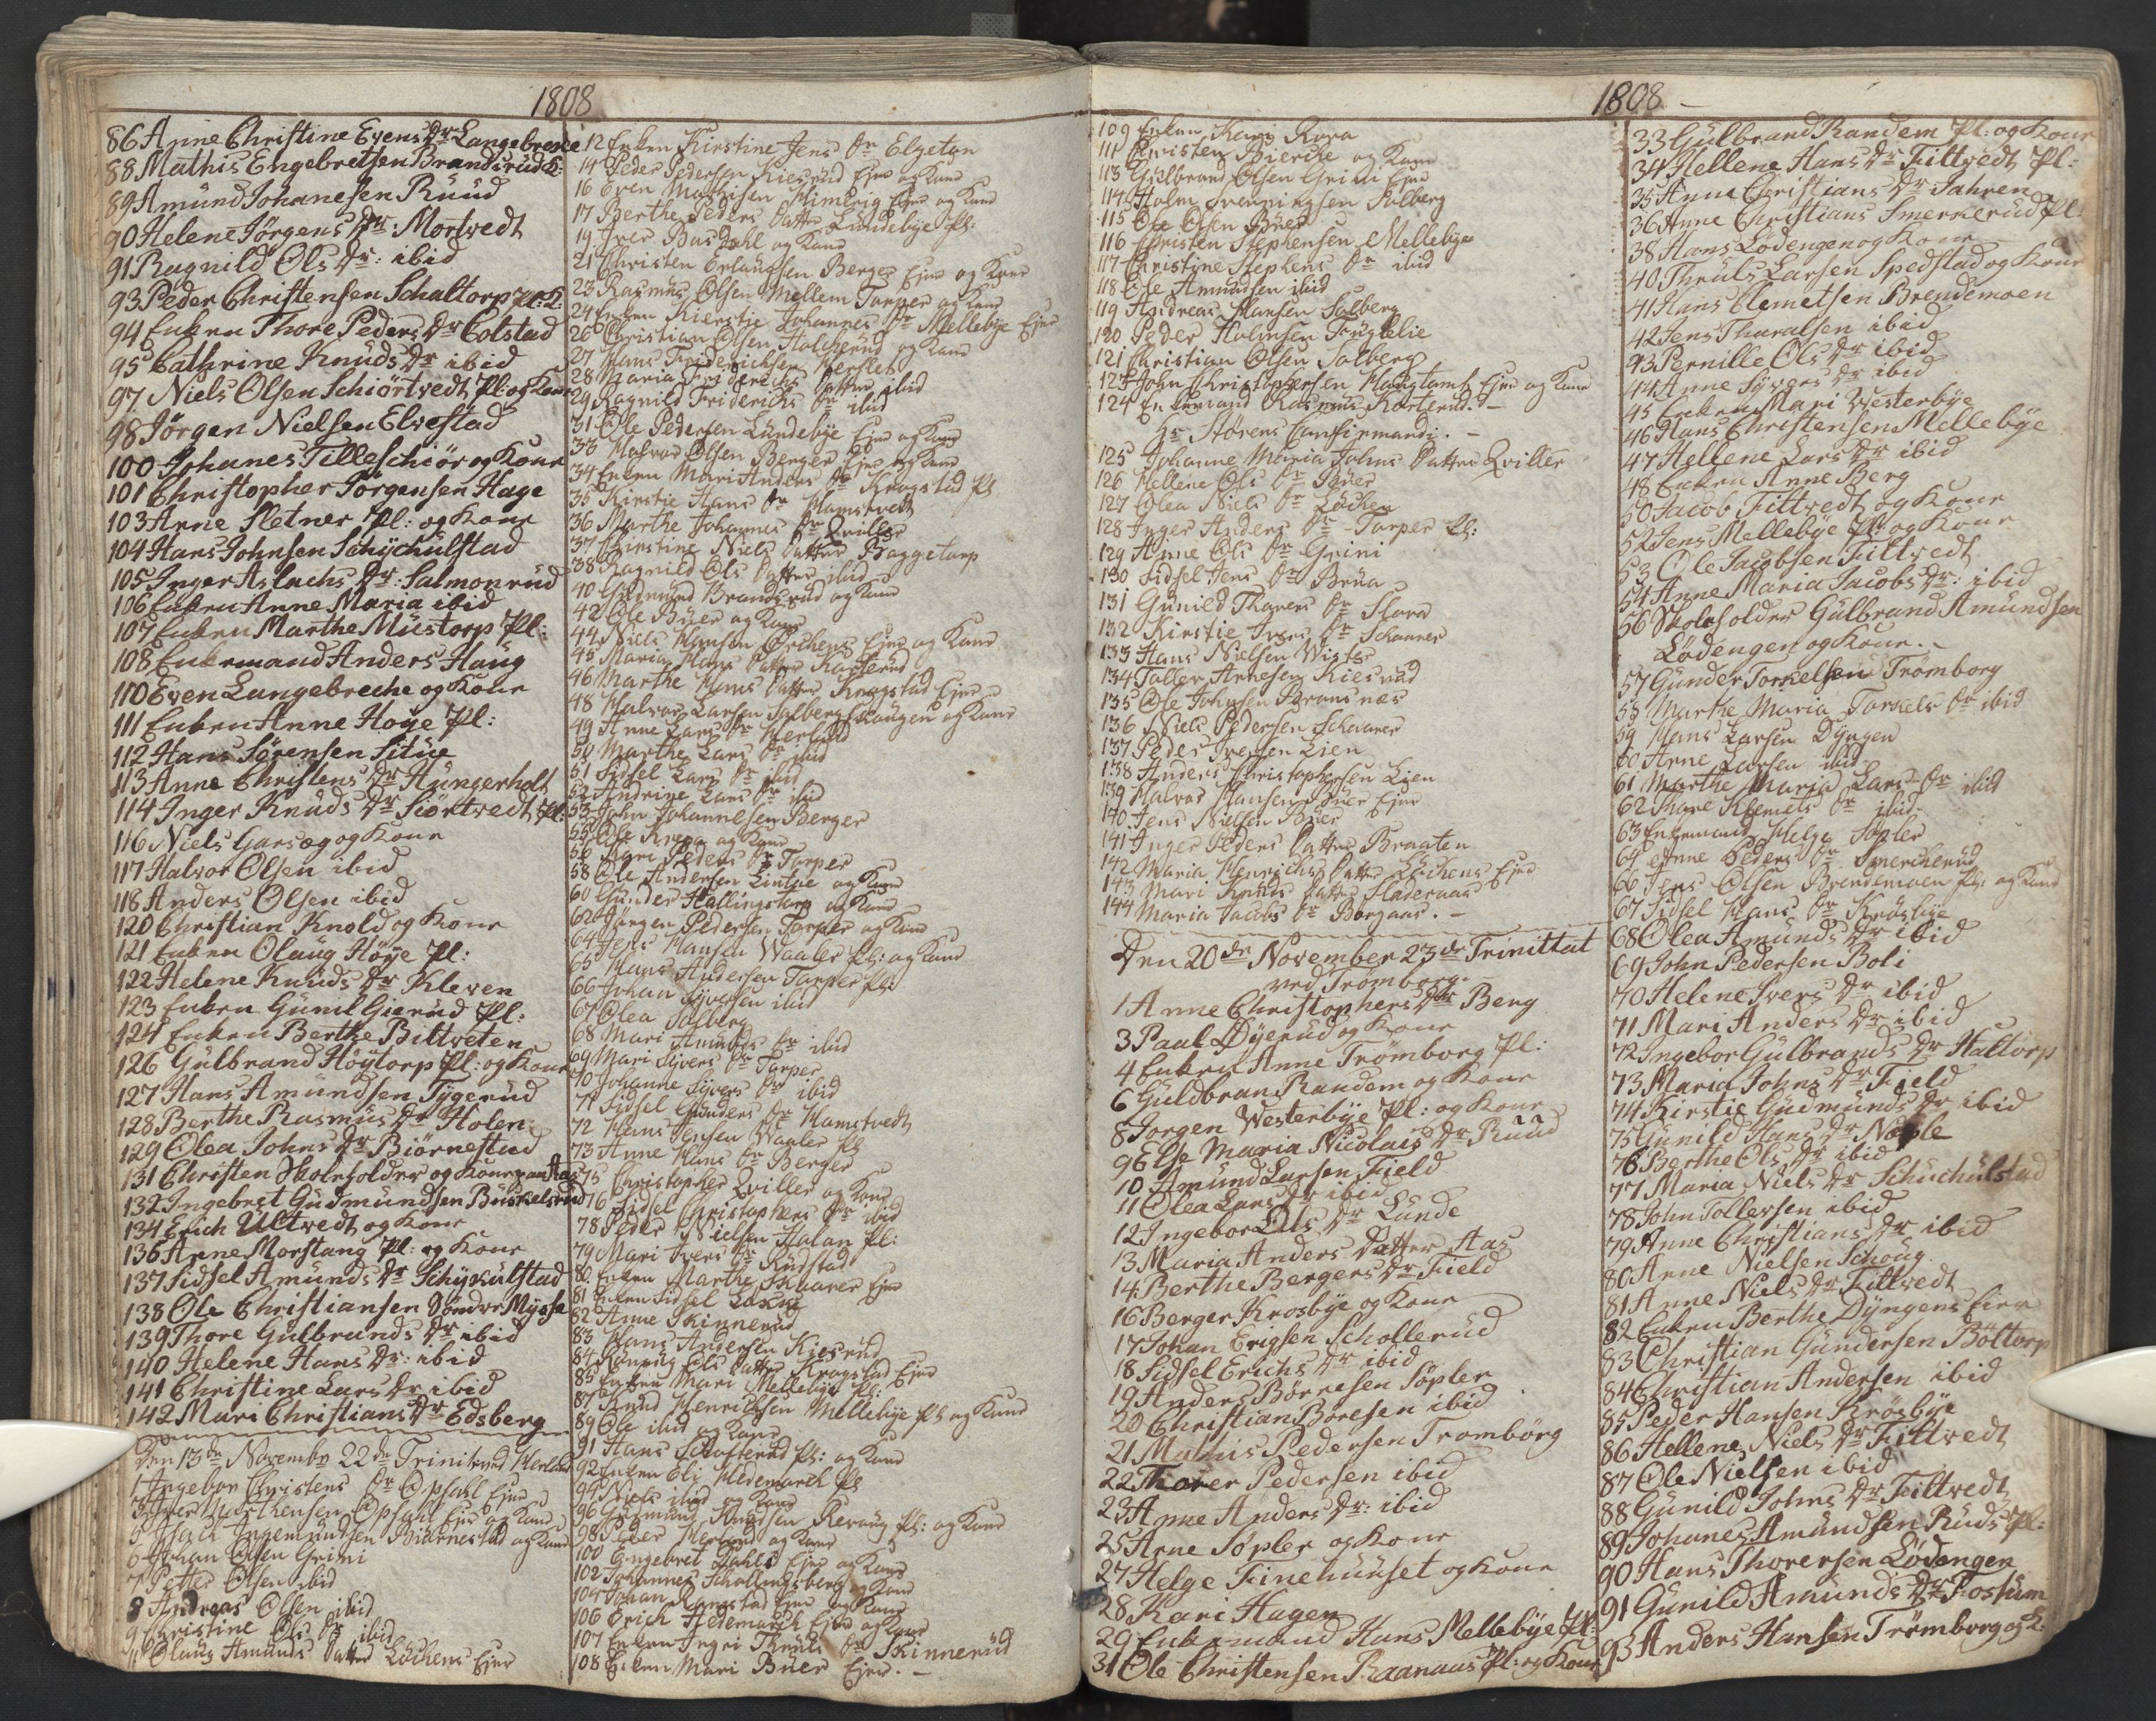 1808
86 Anne Christine Evens Dr Langebreche
88 Mathis Engebretsen Brandsrud K:
89 Amund Johanesen Ruud
90 Helene Jørgens Dr: Mortvedt
91 Ragnild Ols Dr: ibid
93 Peder Christensen Schaltorp Pl: K:
94 Enken Thore Peders Dr Colstad
95 Cathrine Knuds Dr ibid
97 Niels Olsen Schiörtvedt Pl: og Kone
98 Jörgen Nielsen Elvestad
100 Johanes Tilleschiör og Kone
101 Christopher Jörgensen Hage
103 Arne Sletner Pl: og Kone
104 Hans Johnsen Schychulstad
105 Inger Aslachs Dr: Salmonrud
106 Enken Anne Maria ibid
107 Enken Marthe Mustorp Pl:
108 Enkemand Anders Haug
110 Even Langebreche og Kone
111 Enken Anne Høye Pl:
112 Hans Sørensen Situe
113 Anne Christens Dr Hungerholt
114 Inger Knuds Dr Siörtvedt Pl:
116 Niels Garseg og Kone
117 Halvor Olsen ibid
118 Anders Olsen ibid
120 Christian Knold og Kone
121 Enken Olaug Höye Pl:
122 Helene Knuds Dr Kleven
123 Enken Gunil Gierud Pl:
124 Enken Berthe Bittveten
126 Gulbrand Höytorp Pl: og Kone
127 Hans Amundsen Tygerud
128 Berthe Rasmus Dr Holen
129 Olea Johns Dr Biörnestad
131 Christen Skoleholder og Kone paa Aas
132 Ingebret Gudmundsen Buskelsrud
134 Erich Ultvedt og Kone
136 Arne Morstang Pl: og Kone
137 Sidsel Amunds Dr Schykulstad
138 Ole Christiansen Söndre Mysse
139 Thore Gulbrands Dr ibid
140 Helene Hans Dr: ibid
141 Christine Lars Dr ibid
142 Mari Christians Dr Edsberg
Den 13de Novembr 22de Trinit ved Herland
1 Ingebor Christens Dr Opsahl Ejer
3 Iver Opsahl Ejer og Kone
5 Isach Ingemundsen Biørnestad og Kone
6 Johan Olsen Grini
7 Petter Olsen ibid
8 Andreas Olsen ibid
9 Christine Ols Dr ibid
11 Olaug Amunds Datter Löchens Ejer
12 Enken Kirstine Jens Dr Elgetun
14 Peder Pedersen Kiesrud Ejer og Kone
16 Even Mathisen Himberg Ejer og Kone
17 Berthe Peders Datter Lundebye Pl:
19 Iver Busdahl og Kone
21 Christen Erlaugsen Berger Ejer og Kone
23 Rasmus Olsen Mellem Torper og Kone
24 Enken Kierstie Johannes Dr Mellebye Ejer
26 Christian Olsen Holcherud og Kone
27 Hans Friderichsen Herslet
28 Maria Friderichs Datter ibid
29 Ragnild Friderichs Dr ibid
31 Ole Pedersen Lundebye Ejer og Kone
33 Halvor Olsen Berger Ejer og Kone
34 Enken Mari Anders Dr Krogstad Pl
35 Kirstie Hans Dr Hamstvedt
36 Marthe Johannes Dr Qviller
37 Christine Niels Datter Baggetorp
38 Ragnild Ols Datter ibid
40 Gudmund Brandsrud og Kone
42 Ole Büer og Kone
44 Niels Hansen Ørchens Ejer og Kone
45 Maria Hans Datter Karterud
46 Marthe Hans Datter Krogstad Ejer
48 Halvor Larsen Solberg Haugen og Kone
49 Anne Lars Dr Herland
50 Marthe Lars Dr ibid
51 Sidsel Lars Dr ibid
52 Andrine Lars Dr ibid
53 John Johannesen Berger
55 Ole Krepa og Kone
56 Kari Peders Dr Torper
58 Ole Andersen Lintue og Kone
60 Gunder Hallingstorp og Kone
62 Jörgen Pedersen Torper og Kone
64 Jens Hansen Waaler Pl: og Kone
65 Hans Andersen Torper Pl:
66 Johan Syversen ibid
67 Olea Solberg
68 Mari Amunds Dr ibid
69 Mari Syvers Dr Torper
70 Johanne Syvers Dr ibid
71 Sidsel Gunders Dr Hamstvedt
72 Hans Jensen Waaler Pl
73 Anne Hans Dr Berger
75 Christopher Qviller og Kone
76 Sidsel Christophers Dr ibid
78 Peder Nielsen Halan Pl:
79 Mari Ivers Dr Rudstad
80 Enken Marthe Skaarer Ejer
81 Enken Sidsel Løken
82 Anne Skinnerud
83 Hans Andersen Kiesrud
84 Ols Datter Krogstad Ejer
85 Enken Mari Mellebye Pl:
87 Knud Henrichsen Mellebye Pl: og Kone
89 Ole ibid og Kone
91 Hans Schofterud Pl: og Kone
92 Enken Eli Hedemarch Pl
94 Niels ibid og Kone
96 Gudmund Knudsen Reraug Pl: og Kone
98 Peder Herland og Kone
100 Engebret Dahle Ejer og Kone
102 Johannes Schollingsberg og Kone
104 Johan Ramstad Ejer og Kone
106 Erich Hedemarch Ejer og Kone
107 Enken Ingri Thruls Dr Skinnerud
108 Enken Mari Büer Ejer. –
1808
109 Enken Kari Rova
111 Christen Bierche og Kone
113 Gulbrand Olsen Grini Ejer
114 Holm Svenningsen Solberg
115 Ole Olsen Büer
116 Christen Stephensen Mellebye
117 Christine Stephens Dr ibid
118 Ole Amundsen ibid
119 Andreas Hansen Solberg
120 Peder Holmsen Fuglelie
121 Christian Olsen Solberg
123 John Christophersen Haugtomt Ejer og Kone
124 Enkemand Rasmus Karterud. –
Hr Störens Confirmandi. –
125 Johanne Maria Johns Datter Qviller
126 Hellene Ols Dr Büer
127 Olea Niels Dr Löchen
128 Inger Anders Dr – Torper Pl:
129 Anne Ols Dr Grini
130 Sidsel Jens Dr Brüa
131 Gunild Thorers Dr Slora
132 Kirstie Ivers Dr Schaarer
133 Hans Nielsen Wister
134 Toller Arnesen Kiesrud
135 Ole Johnsen Bronsnæs
136 Niels Pedersen Schaarer
137 Peder Iversen Lien
138 Anders Christophersen Lien
139 Halvor Hansen Büer Ejer
140 Jens Nielsen Büer
141 Inger Peders Datter Braaten
142 Maria Henrichs Datter Löchens Ejer
143 Mari Knuds Datter Sladeraas
144 Maria Jacobs Dr Borgaas. –
Den 20de November 23de Trinittat
ved Trømborg. –
1 Anne Christophers Dtr Berg
3 Paul Dyerud og Kone
4 Enken Anne Trømborg Pl:
6 Guldbran Randem og Kone
8 Jorgen Westerbye Pl: og Kone
9 Else Maria Nicolais Dr Ruud
10 Amund Larsen Field
11 Olea Lars Dr ibid
12 Ingebor Ols Dr Lunde
13 Maria Anders Datter Aas
14 Berthe Bergers Dr Field
16 Berger Krosbye og Kone
17 Johan Erigsen Schollerud
18 Sidsel Erichs Dr ibid
19 Anders Börresen Söpler
20 Christian Boresen ibid
21 Mathis Pedersen Trombörg
22 Thorer Pedersen ibid
23 Anne Anders Dr: ibid
25 Arne Söpler og Kone
27 Helge Finehuuset og Kone
28 Kari Hagen
29 Enkemand Hans Mellebye Pl:
31 Ole Christensen Raanaas Pl: og Kone
33 Gulbrand Randem Pl: og Kone
34 Hellene Hans Dr Tittvedt Pl:
35 Anne Christians Dr Jahren
36 Anne Christians Smerkerud Pl:
38 Hans Lödengen og Kone
40 Thruls Larsen Spedstad og Kone
41 Hans Clemetsen Brendemoen
42 Jens Tharalsen ibid
43 Pernille Ols Dr ibid
44 Anne Syvers Dr ibid
45 Enken Mari Westerbye
46 Hans Christensen Mellebye
47 Hellene Lars Dr ibid
48 Enken Anne Berg
50 Jacob Tittvedt og Kone
52 Jens Mellebye Pl: og Kone
53 Ole Jacobsen Tittvedt
54 Anne Maria Jacobs Dr: ibid
56 Skoleholder Gulbrand Amundsen
Lödengen og Kone. –
57 Gunder Torkelsen Trømborg
58 Marthe Maria Torkels Dr ibid
59 Hans Larsen Dyngen
60 Arne Larsen ibid
61 Marthe Maria Lars Dr ibid
62 Thore Klemets Dr ibid
63 Enkemand Helge Søpler
64 Anne Peders Dr Smercherud
66 Jens Olsen Brendemoen Pl: og Kone
67 Sidsel Hans Dr Krösbye
68 Olea Amunds Dr ibid
69 John Pedersen Boli
70 Helene Ivers Dr ibid
71 Mari Anders Dr ibid
72 Ingebor Gulbrands Dr Haltorp
73 Maria Johns Dr Field
74 Kirstie Gudmunds Dr ibid
75 Gunild Hans Dr
76 Berthe Ols Dr ibid
77 Maria Niels Dr Schuchulstad
78 John Tollersen ibid
79 Anne Christians Dr ibid
80 Arne Nielsen Schoug
81 Anne Niels Dr Tittvedt
82 Enken Berthe Dyngens Eier
83 Christian Gundersen Böltorp
84 Christian Andersen ibid
85 Peder Hansen Krösbye
86 Hellene Niels Dr Tittvedt
87 Ole Nielsen ibid
88 Gunild Johns Dr Tittvedt
89 Johanes Amundsen Ruds Pl:
90 Hans Thorersen Lödengen
91 Gunild Amunds Dr Fossum
93 Anders Hansen Trömborg og K: